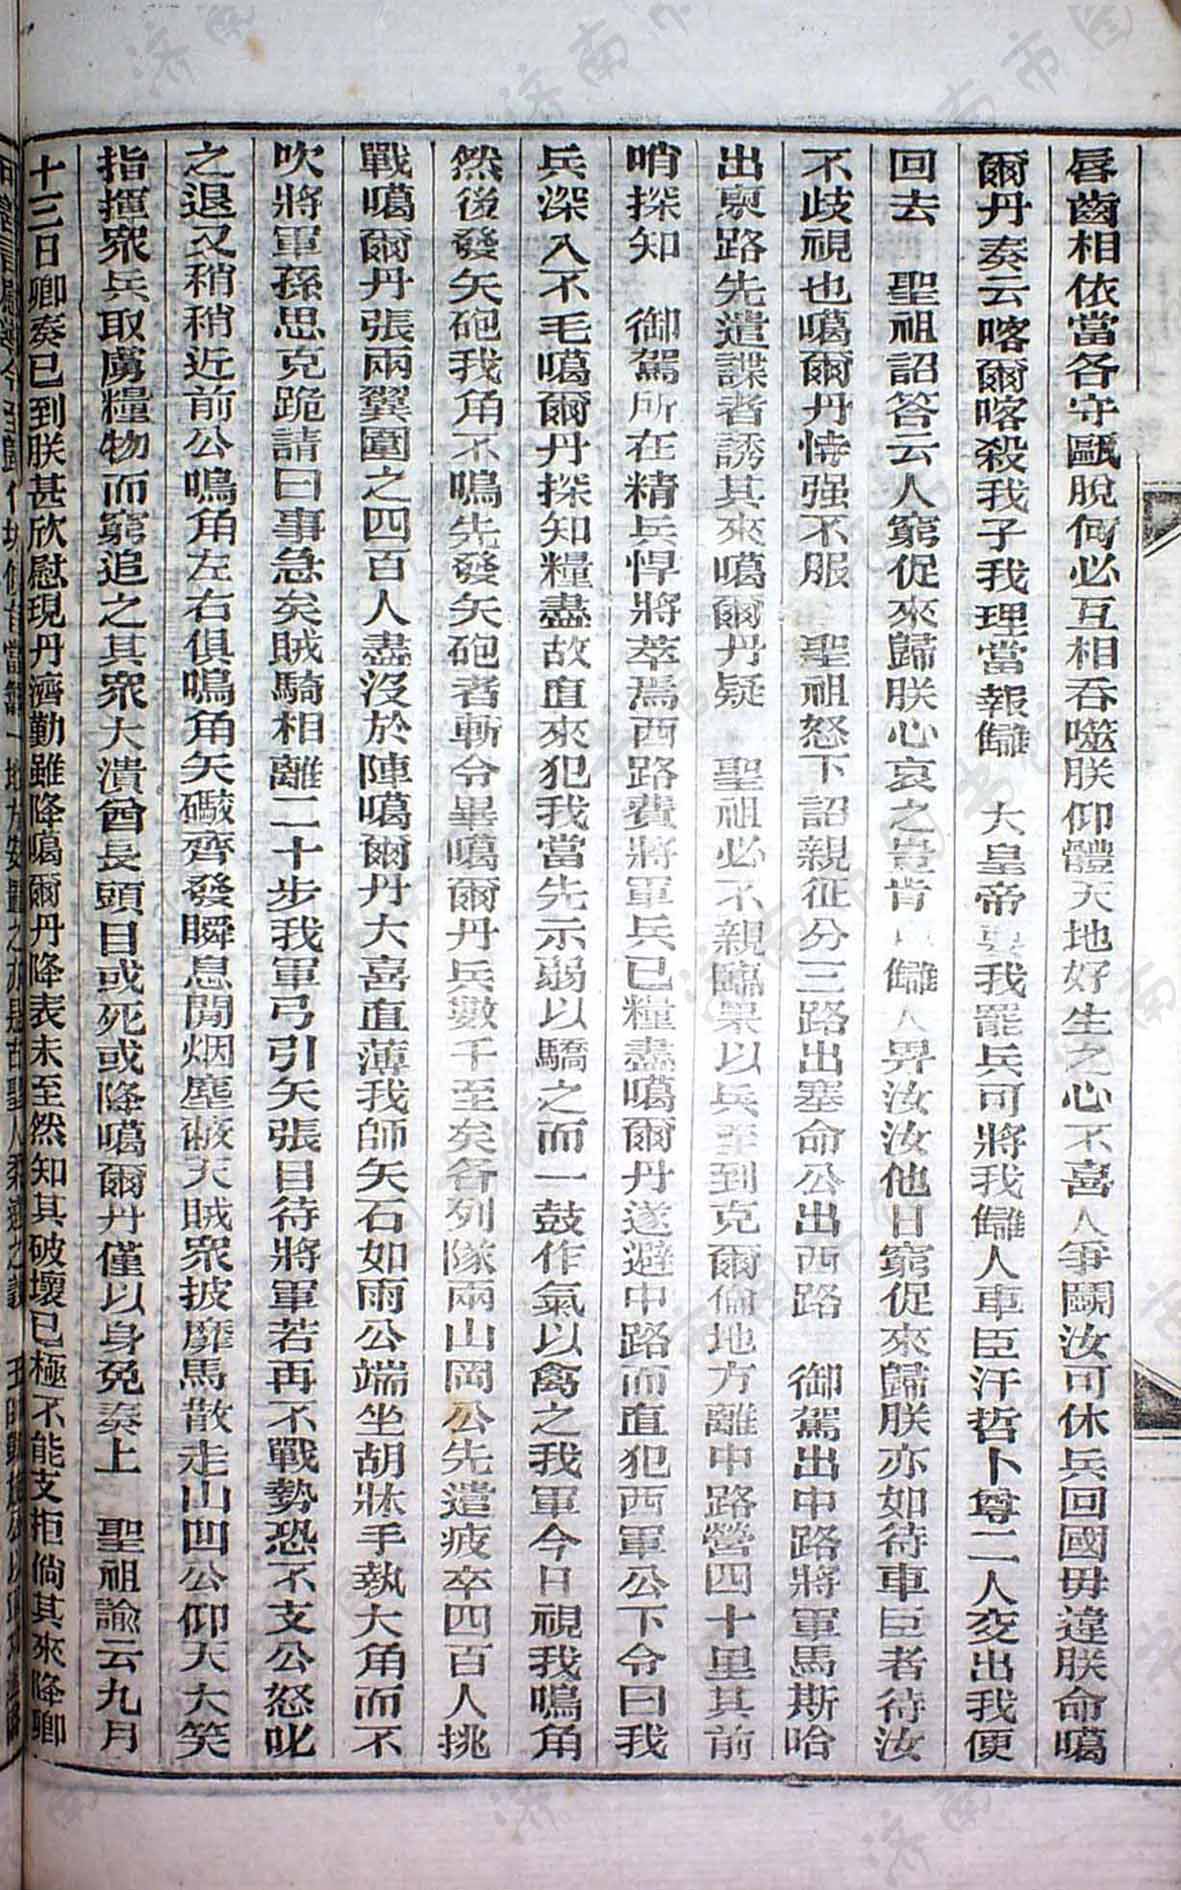 唇齒相依當各守甌脫何必互相吞噬朕仰體天地好生之心不喜人爭鬬汝可休兵回國毋違朕命噶
爾丹奏云喀爾喀殺我子我理當報讎 大皇帝要我罷兵可將我讎人車臣汗哲卜尊二人交出我便
回去 聖祖詔答云人窮促來歸朕心哀之豈肯以讎人畀汝汝他日窮促來歸朕亦如待車臣者待汝
不歧視也噶爾丹恃强不服 聖祖怒下詔親征分三路出塞命公出西路 御駕出中路將軍馬斯哈
出東路先遣諜者誘其來噶爾丹疑 聖祖必不親臨果以兵至到克爾倫地方離中路營四十里其前
哨探知 御駕所在精兵悍將萃焉西路費將軍兵已糧盡噶爾丹遂避中路而直犯西軍公下令曰我
兵深入不毛噶爾丹探知糧盡故直來犯我當先示弱以驕之而一鼓作氣以禽之我軍今日視我鳴角
然後發矢砲我角不鳴先發矢砲者斬令畢噶爾丹兵數千至矣各列隊兩山岡公先遣疲卒四百人挑
戰噶爾丹張兩翼圍之四百人盡沒於陣噶爾丹大喜直薄我師矢石如雨公端坐胡牀手執大角而不
吹將軍孫思克跪請曰事急矣賊騎相離二十步我軍弓引矢張目待將軍若再不戰勢恐不支公怒叱
之退又稍稍近前公鳴角左右俱鳴角矢礮齊發瞬息閒烟塵蔽天賊眾披靡馬散走山凹公仰天大笑
指揮眾兵取虜糧物而窮追之其眾大潰酋長頭目或死或降噶爾丹僅以身免奏上 聖祖諭云九月
十三日卿奏已到朕甚欣慰現丹濟勤雖降噶爾丹降表未至然知其破壞已極不能支拒倘其來降卿